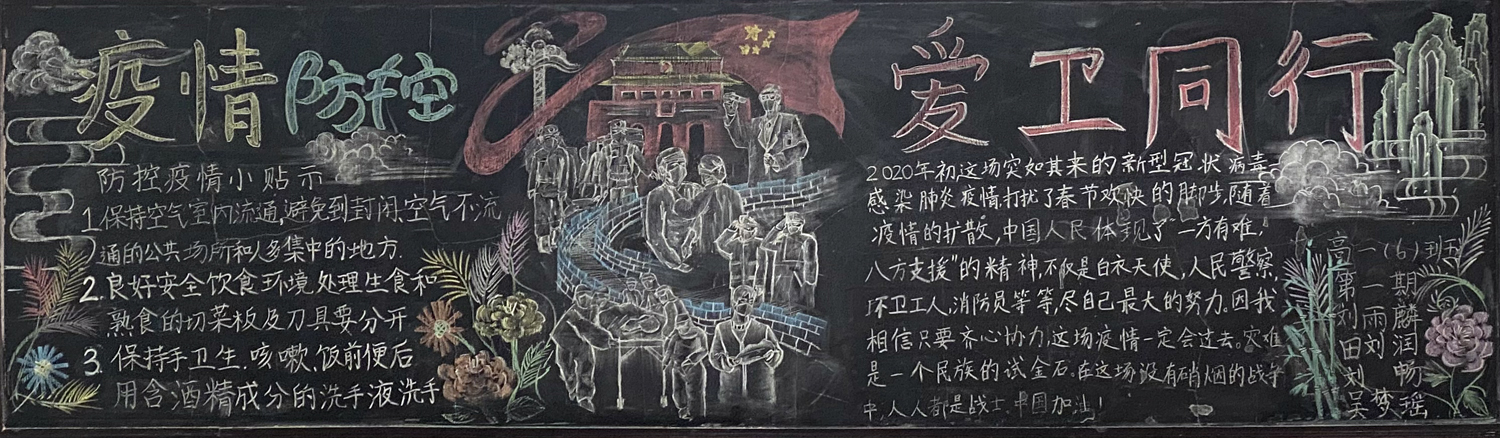 疫情防控
防控疫情小贴示
1.保持空气室内流通,避免到封闭、空气不流
通的公共场所和人多集中的地方.
2.良好安全饮食环境,处理生食和
熟食的切菜板及刀具要分开
3.保持手卫生.咳嗽、饭前便后
用含酒精成分的洗手液洗手
爱卫同行
2020年初这场突如其来的新型冠状病毒
感染肺炎疫情打扰了春节欢快的脚步,随着
疫情的扩散,中国人民体现了“一方有难,
八方支援”的精神,不仅是白衣天使,人民警察,
环卫工人,消防员等等,尽自己最大的努力。因我
相信只要齐心协力,这场疫情一定会过去。灾难
是一个民族的试金石。在这场没有硝烟的战争
中,人人都是战士,中国加油!
高一(6)班
第一期
刘雨麟
田刘润
刘畅
吴梦瑶